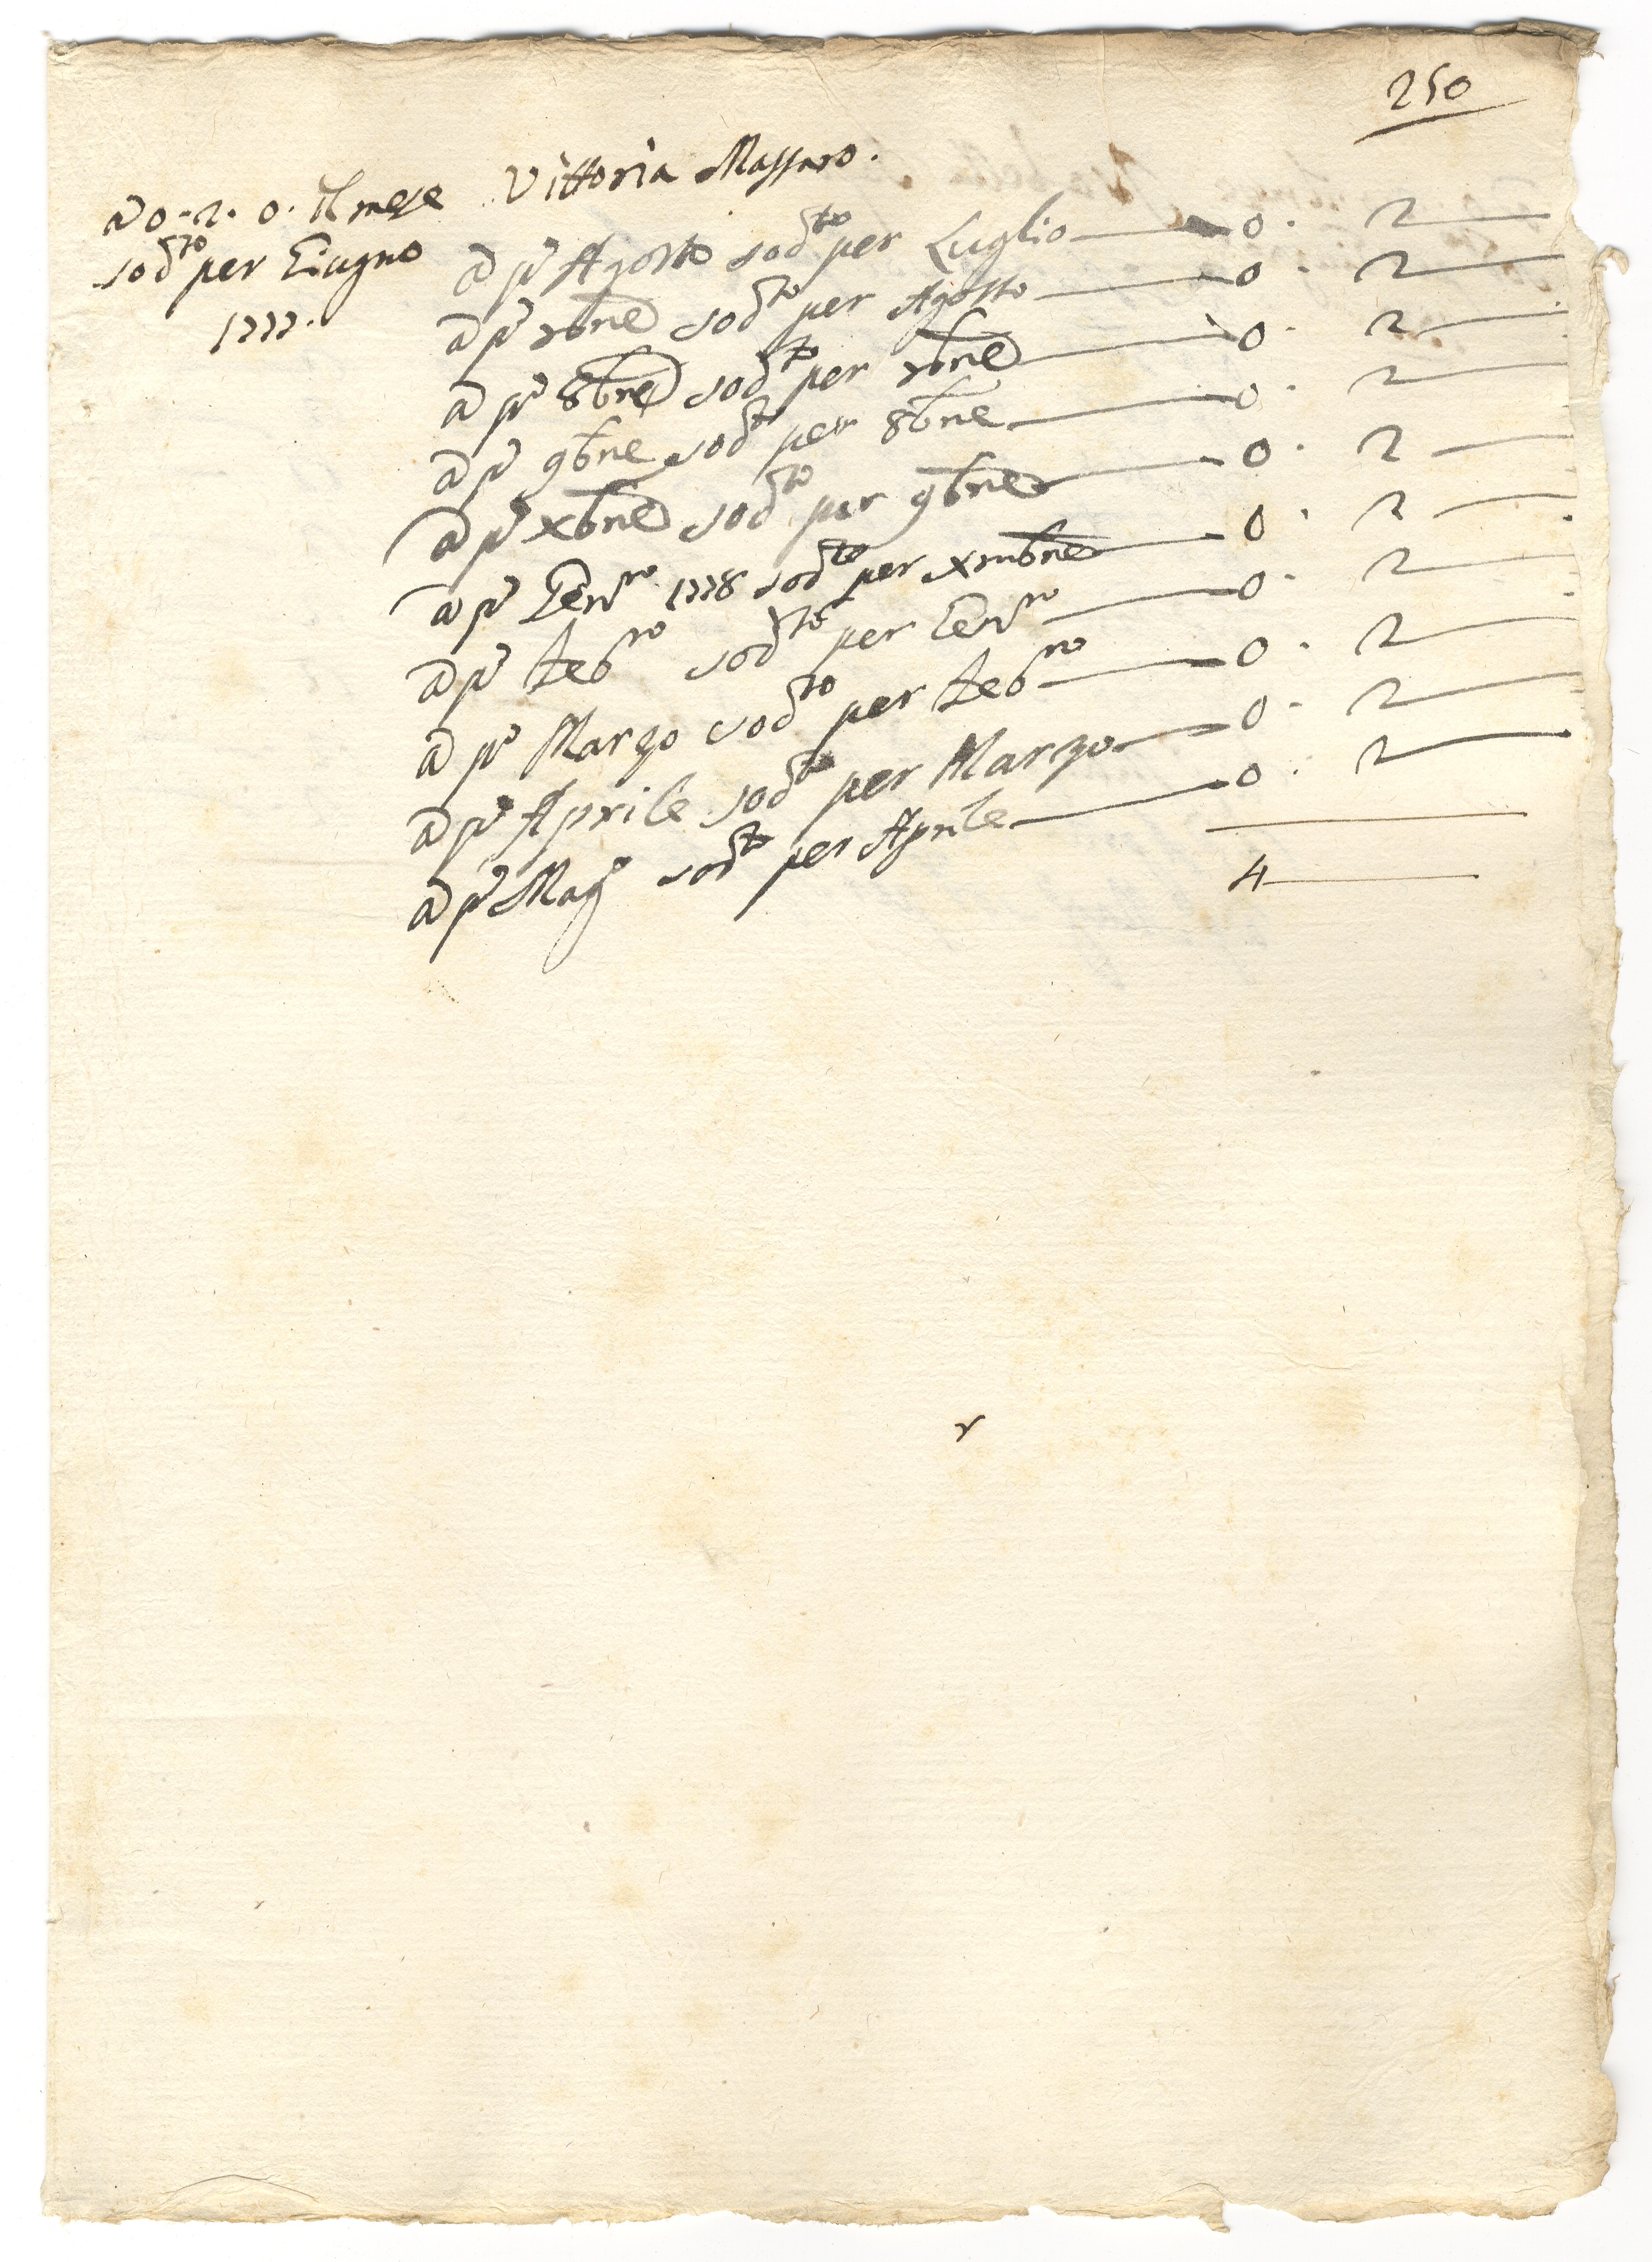 250
Vittoria Massaro.
a 0-2. 0. Il mese
sod.to per Giugno
1777.
a p.o Agosto sod.to per Luglio — 0 . 2 —
a p.o 7bre sod.to per Agosto — 0 . 2 —
a p.o 8bre sod.to per 7bre — 0 . 2 —
a p.o 9bre sod.to per 8bre — 0 . 2 —
a p.o Xbre sod.to per 9bre — 0 . 2 —
a p.o Gen.ro 1778 sod.to per Xmbre — 0 . 2 —
a p.o Feb.ro sod.to per Gen.ro — 0 . 2 —
a p.o Marzo sod.to per Feb.ro — 0 . 2 —
a p.o Aprile sod.to per Marzo — 0 . 2 —
a p.o Mag.o sod.to per Aprile — 0 . 2 —
4 —